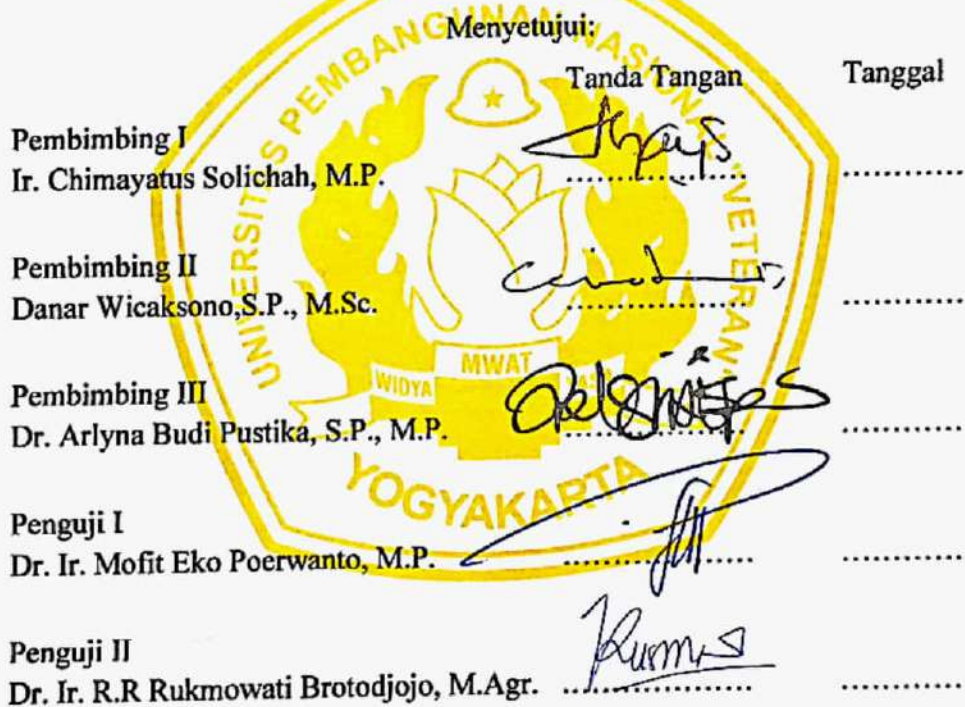 Menyetujui:
Tanda Tangan Tanggal
Pembimbing I
Ir. Chimayatus Solichah, M.P. .................. ..............
Pembimbing II
Danar Wicaksono,S.P., M.Sc. .................. ..............
Pembimbing III
Dr. Arlyna Budi Pustika, S.P., M.P. .................. ..............
Penguji I
Dr. Ir. Mofit Eko Poerwanto, M.P. .................. ..............
Penguji II
Dr. Ir. R.R Rukmowati Brotodjojo, M.Agr. .................. ..............
UNIVERSITAS PEMBANGUNAN NASIONAL "VETERAN"
WIDYA MWAT
YOGYAKARTA